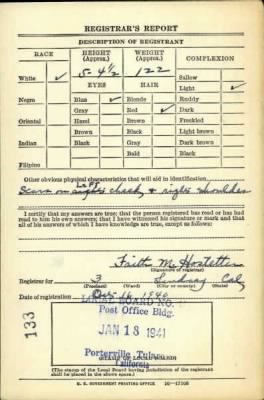 REGISTRAR'S REPORT
DESCRIPTION OF REGISTRANT
RACE HEIGHT (Approx.) WEIGHT (Approx.) COMPLEXION
White ✓ 5-4½ 122 Sallow
EYES HAIR Light ✓
Negro Blue ✓ Blonde Ruddy
Gray Red ✓ Dark
Oriental Hazel Brown Freckled
Brown Black Light brown
Indian Black Gray Dark brown
Bald Black
Filipino
Other obvious physical characteristics that will aid in identification
Left
Scar on right cheek & right shoulder
I certify that my answers are true; that the person registered has read or has had
read to him his own answers; that I have witnessed his signature or mark and that
all of his answers of which I have knowledge are true, except as follows:
Faith M Hostetter
(Signature of registrar)
Registrar for 3 Lindsay Cal
(Precinct) (Ward) (City or county) (State)
Date of registration Oct 16 1940
LOCAL BOARD NO.
Post Office Bldg.
JAN 18 1941
Porterville Tulare
California
(STAMP OF LOCAL BOARD)
(The stamp of the Local Board having jurisdiction of the registrant
shall be placed in the above space.)
U. S. GOVERNMENT PRINTING OFFICE 16-17105
133